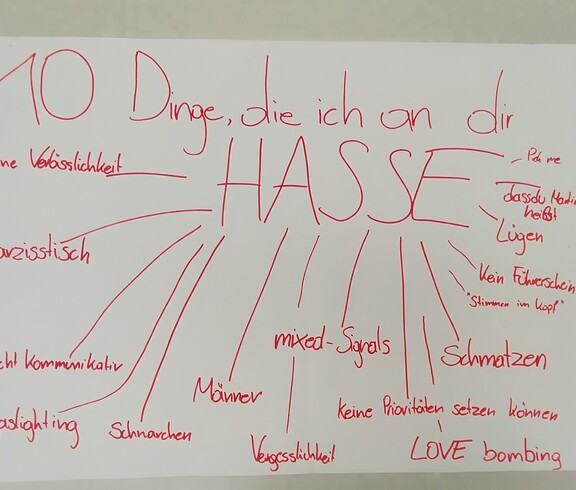 10 Dinge, die ich an dir
HASSE
ne Verlässlichkeit
dassdu
heißt
Lügen
arzisstisch
Kein Führerschein
"Stimmen im Kopf"
mixed-Signals
cht kommunikativ
Schmatzen
Männer
keine Prioritäten setzen können
aslighting
Schnarchen
Vergesslichkeit
LOVE bombing